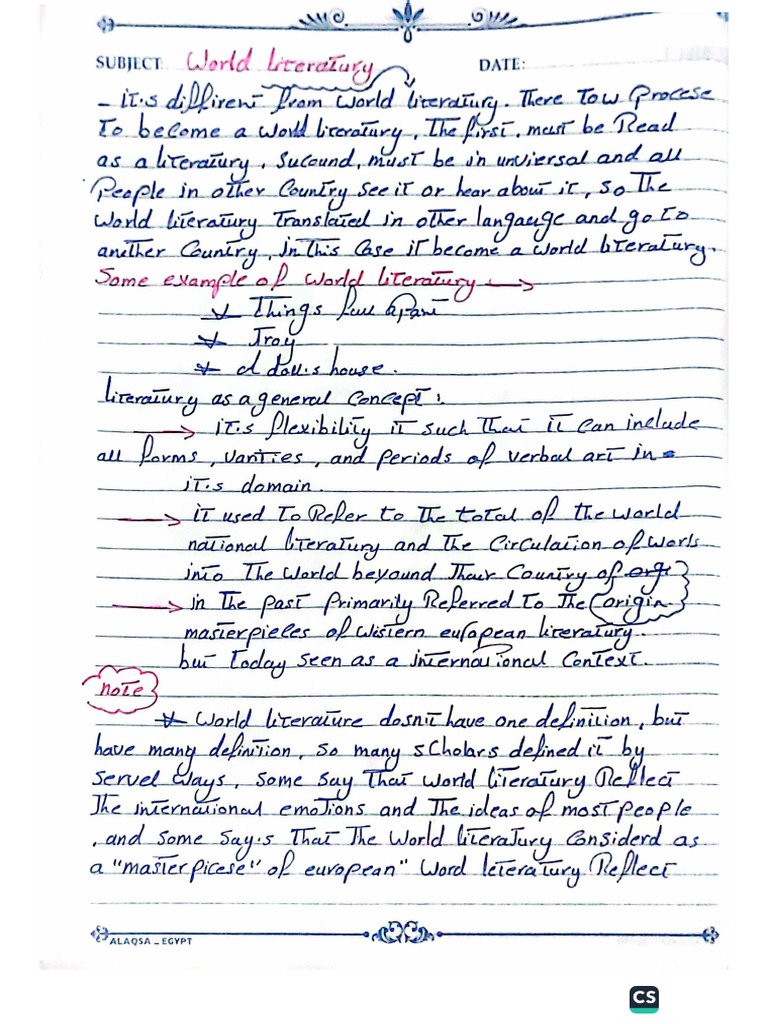 SUBJECT: World Literatury DATE:
- it.s diffirent from world literatury. There Tow Procese
To become a world literatury, The first, must be Read
as a literatury, Sucound, must be in unviersal and all
People in other Country see it or hear about it, so The
World literatury Translated in other langauge and go to
another Country, in this Case it become a world literatury.
Some example of World literatury →
Things fall apart
Troy
A doll.s house.
literatury as a general Concept:
→ it.s flexibility it such that it can include
all forms, varities, and periods of verbal art in
it.s domain.
→ it used To Refer to The total of the world
national literatury and The Circulation of works
into The world beyound Their Country of origin
→ in The past Primarity Referred To The
masterpieles of Wistern european literatury.
but Today seen as a international Context.
note
World literature dosn't have one definition, but
have many definition, so many sCholars defined it by
Servel ways, some say That world literatury Reflect
The international emotions and The ideas of most people
, and some say.s That The World literatury Considerd as
a "masterpicese" of european" Word leteratury Reflect
ALAQSA _ EGYPT
CS